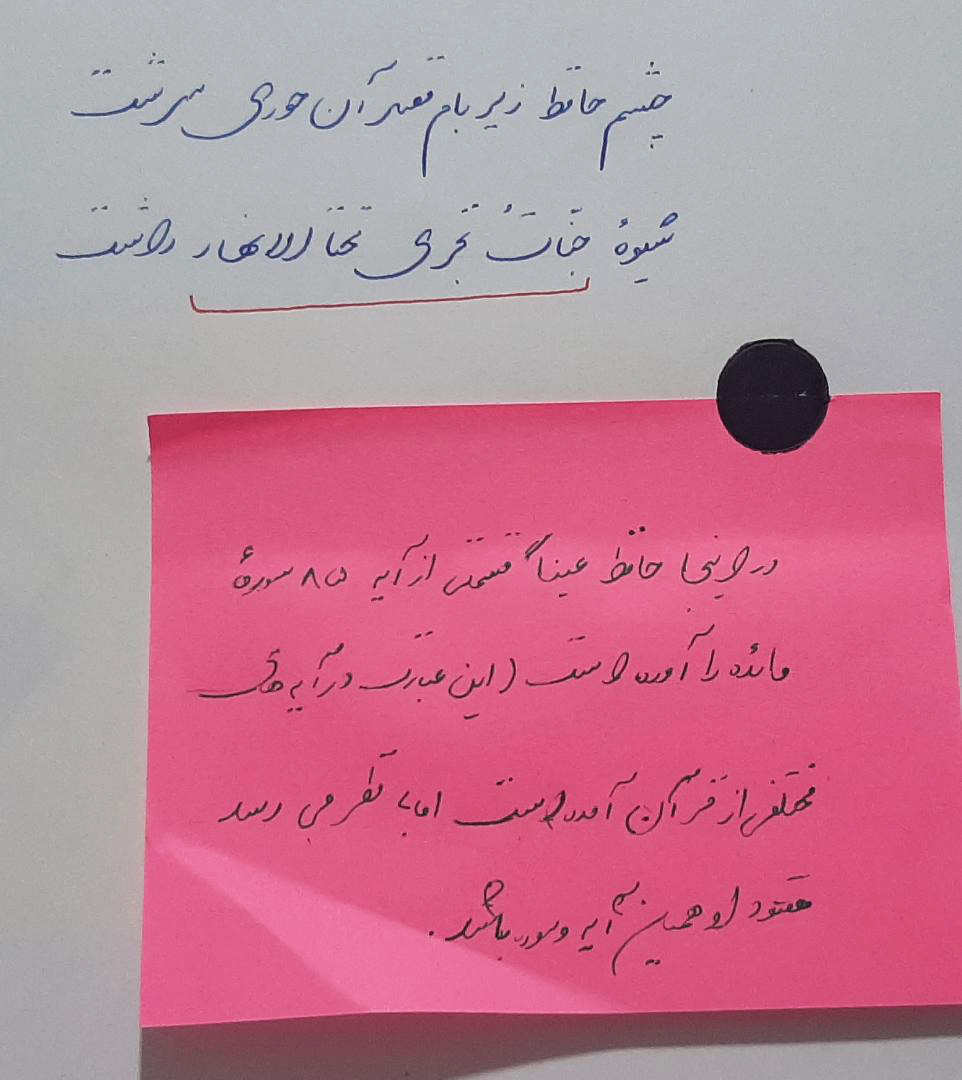 چشم حافظ زیر بام قصر آن حوری سرشت
شیوهٔ جنّاتُ تجری تحتا الانهار داشت
در اینجا حافظ عیناً قسمتی از آیه ۸۵ سورهٔ
مائده را آورده است (این عبارت در آیه های
مختلفی از قرآن آمده است اما به نظر می رسد
مقصود او همین آیه و سوره باشد.